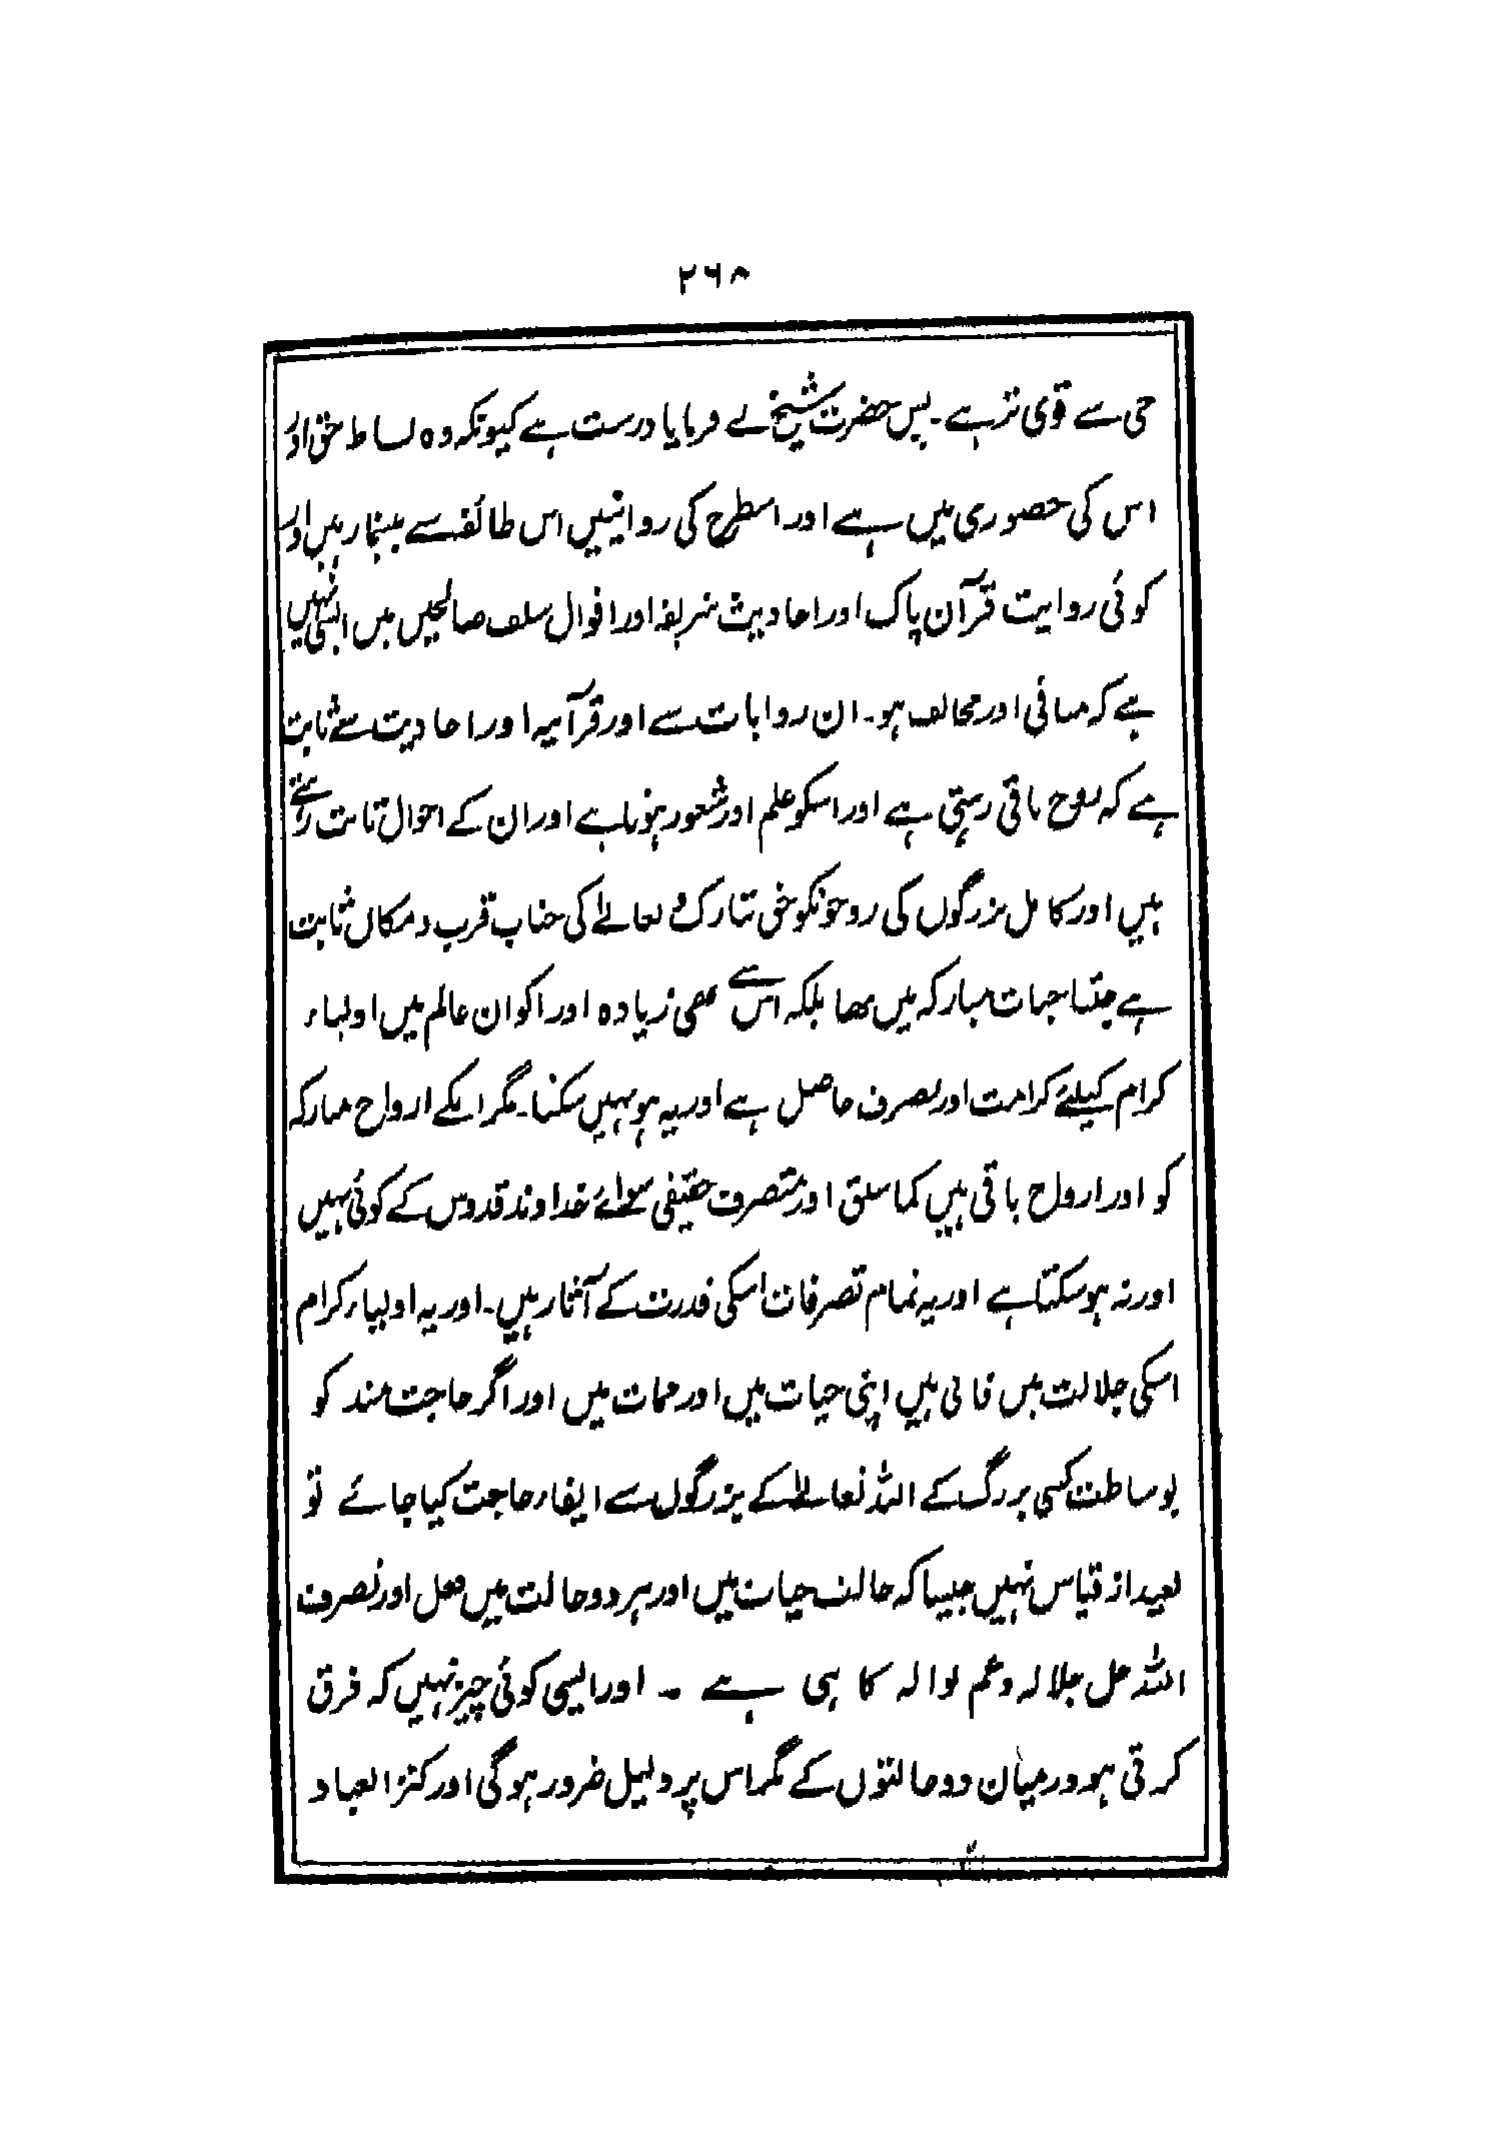 ۲۶۸
حی سے قوی تر ہے۔ پس حضرت شیخ نے فرمایا درست ہے کیونکہ وہ بساط حق اور
اس کی حضوری میں ہے اور اسطرح کی روایتیں اس طائفہ سے بیشمار ہیں اور
کوئی روایت قرآن پاک اور احادیث شریفہ اور اقوال سلف صالحین میں ایسی نہیں
ہے کہ منافی اور مخالف ہو۔ ان روایات سے اور قرآنیہ اور احادیث سے ثابت
ہے کہ روح باقی رہتی ہے اور اسکو علم اور شعور ہوتا ہے اور ان کے احوال ثابت رہتے
ہیں اور کامل بزرگوں کی روحونکو حق تبارک و تعالےٰ کی جناب قرب و مکان ثابت
ہے جتنا حیات مبارکہ میں تھا بلکہ اس سے بھی زیادہ اور اکوان عالم میں اولیاء
کرام کیلئے کرامت اور تصرف حاصل ہے اور یہ ہو نہیں سکتا۔ مگر انکے ارواح مبارکہ
کو اور ارواح باقی ہیں کما سبق اور متصرف حقیقی سوائے خداوند قدوس کے کوئی نہیں
اور نہ ہو سکتا ہے اور یہ تمام تصرفات اسکی قدرت کے آثار ہیں۔ اور یہ اولیاء کرام
اسکی جلالت میں فانی ہیں اپنی حیات میں اور ممات میں اور اگر حاجت مند کو
بوساطت کسی بزرگ کے اللہ تعالےٰ کے بزرگوں سے ایفاء حاجت کیا جائے تو
بعید از قیاس نہیں جیسا کہ حالت حیات میں اور ہر دو حالت میں فعل اور تصرف
اللہ جل جلالہ و عم نوالہ کا ہی ہے ۔ اور ایسی کوئی چیز نہیں کہ فرق
کرتی ہو درمیان دو حالتوں کے مگر اس پر دلیل ضرور ہوگی اور کنز العباد